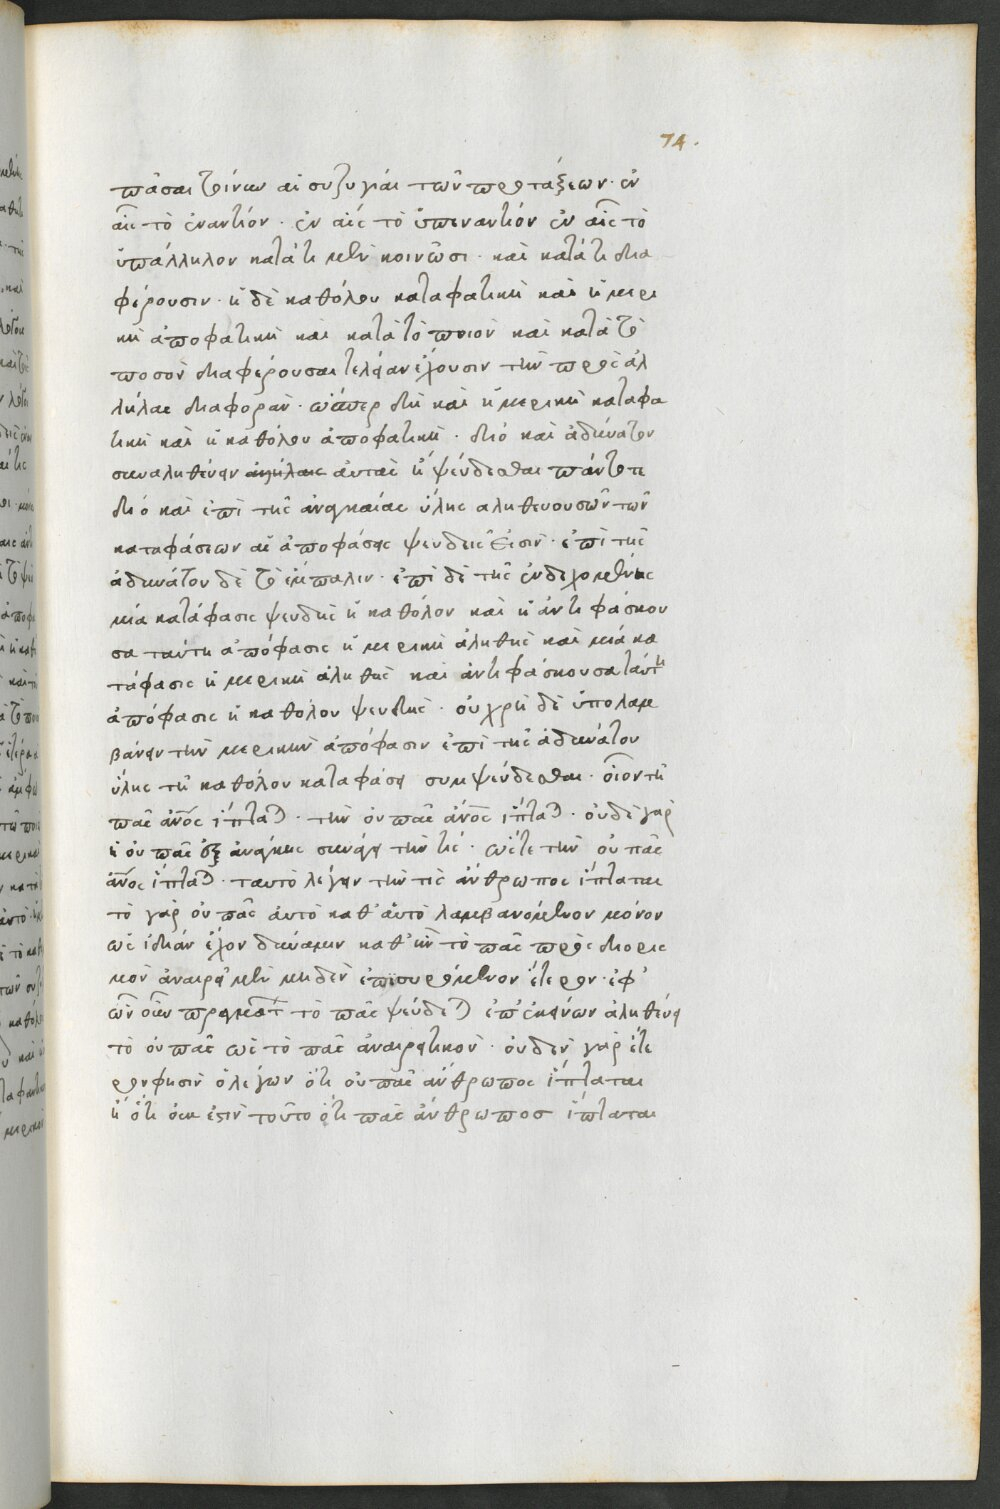 74.
πᾶσαι τοίνυν αἱ συζυγίαι τῶν προτάξεων· ἐν
αἷς τὸ ἐναντίον· ἐν αἷς τὸ ὑπεναντίον ἐν αἷς τὸ
ὑπάλληλον κατά τι μὲν κοινῶσι· καὶ κατά τι δια
φέρουσιν· ἡ δὲ καθόλου καταφατικὴ καὶ ἡ μερι
κὴ ἀποφατικὴ καὶ κατὰ τὸ ποιὸν καὶ κατὰ τὸ
ποσὸν διαφέρουσαι τελείαν ἔχουσιν τὴν πρὸς ἀλ
λήλας διαφοράν· ὥσπερ δὴ καὶ ἡ μερικὴ καταφα
τικὴ καὶ ἡ καθόλου ἀποφατικὴ· διὸ καὶ ἀδύνατον
συναληθεύειν αὐτὰς ἢ ψεύδεσθαι πάντοτε
διὸ καὶ ἐπὶ τῆς ἀναγκαίας ὕλης αληθευουσῶν τῶν
καταφάσεων αἱ ἀποφάσεις ψευδεῖς εἰσιν· ἐπὶ τῆς
ἀδυνάτου δὲ τὸ ἔμπαλιν· ἐπὶ δὲ τῆς ἐνδεχομένης
μία κατάφασις ψευδὴς ἡ καθόλου καὶ ἡ ἀντιφάσκου
σα ταύτῃ ἀπόφασις ἡ μερικὴ ἀληθὴς καὶ μία κα
τάφασις ἡ μερικὴ ἀληθὴς καὶ ἀντιφάσκουσα ταύτῃ
ἀπόφασις ἡ καθόλου ψευδὴς· οὐ χρὴ δὲ ὑπολαμ
βάνειν τὴν μερικὴν ἀπόφασιν ἐπὶ τῆς ἀδυνάτου
ὕλης τῇ καθόλου καταφάσει συμψεύδεσθαι· οἷον τῇ
πᾶς ἄνος ἵπταται· τὴν οὐ πᾶς ἄνος ἵπταται· οὐδὲ γὰρ
ἡ οὐ πᾶς ἐξ ἀνάγκης συνάγει τὴν τίς· ὥστε τὴν οὐ πᾶς
ἄνος ἵπταται· ταυτὸ λέγειν τὴν τὶς ἄνθρωπος ἵπταται
τὸ γὰρ οὐ πᾶς αὐτὸ καθ' αὑτὸ λαμβανόμενον μόνον
ὡς ἰδίαν ἔχον δύναμιν καθ' ἣν τὸ πᾶς προσδιορισ
μὸν ἀναιρεῖ μὲν μηδὲν ἐπισυρόμενον ἕτερον· ἐφ'
ὧν οὖν πραγμάτων τὸ πᾶς ψεύδεται ἐπ' ἐκείνων ἀληθεύει
τὸ οὐ πᾶς ὡς τὸ πᾶς ἀναιρετικὸν· οὐδὲν γὰρ ἕτε
ρον φησὶν ὁ λέγων ὅτι οὐ πᾶς ἄνθρωπος ἵπταται
ἢ ὅτι οὐκ ἔστιν τοῦτο ὅτι πᾶς ἄνθρωπος ἵπταται